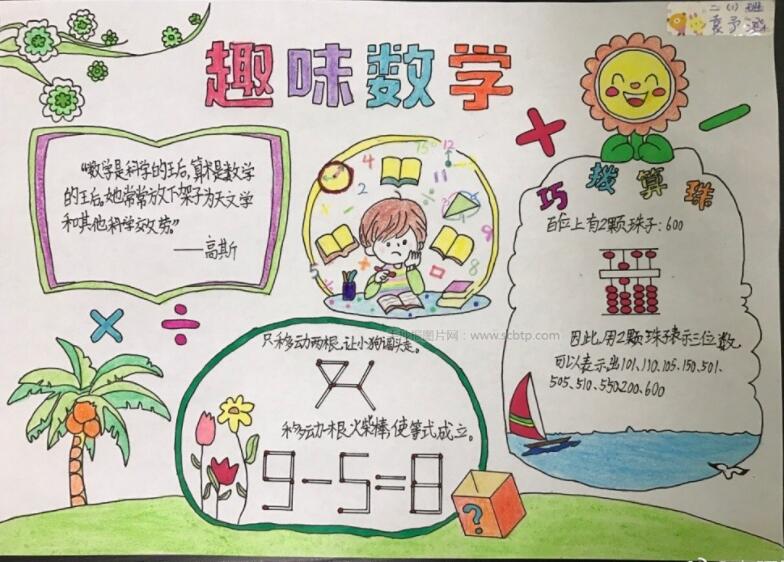 二(1)班
趣味数学
"数学是科学的王后,算术是数学
的王后,她常常放下架子为天文学
和其他科学效劳。"
——高斯
15° 12
4
2
11
9
8
5
只移动两根,让小狗调头走。
移动一根火柴棒,使等式成立。
9-5=8
?
巧拨算珠
百位上有2颗珠子:600
因此,用2颗珠子表示三位数,
可以表示出101、110、105、150、501、
505、510、550、200、600
图片网:www.scbtp.com